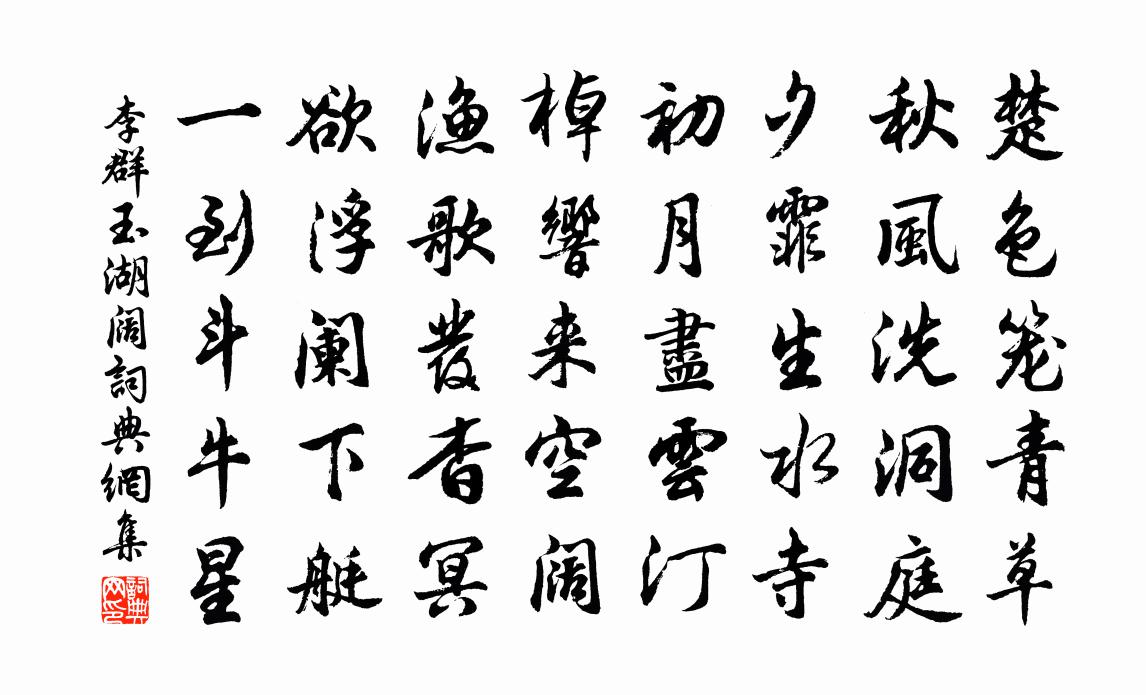 楚色笼青草
秋風洗洞庭
夕霏生水寺
初月盡雲汀
棹響来空阔
漁歌發杳冥
欲浮阑下艇
一到斗牛星
李群玉湖阔詞典網集
詞典网印